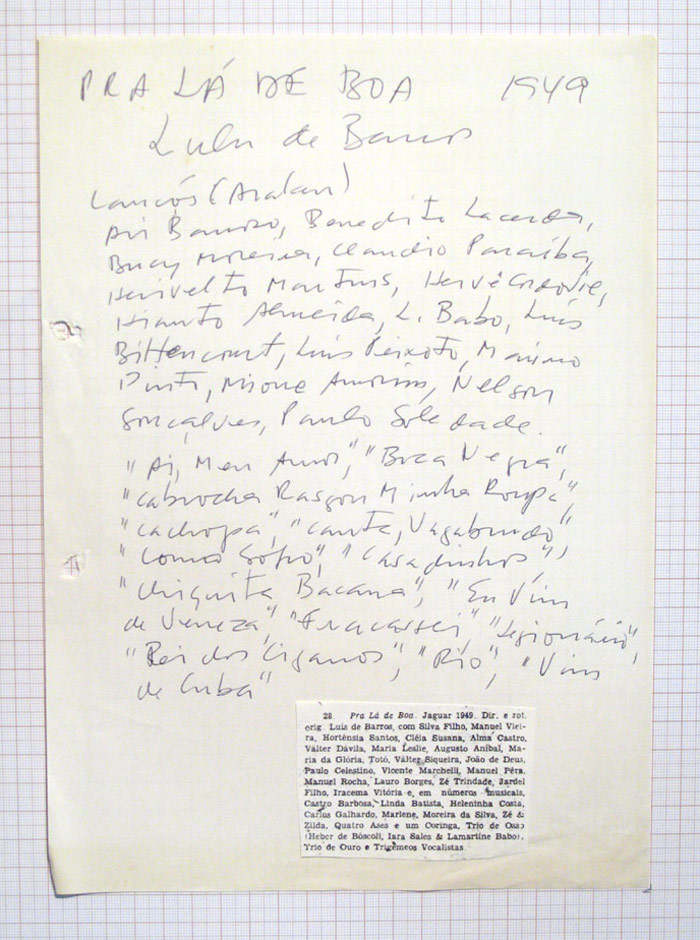 PRA LÁ DE BOA 1949
Lulu de Barros
Lançós (Aralan)
Ari Barroso, Benedito Lacerda,
Bucy Moreira, Claudio Paraíba,
Herivelto Martins, Hervê Cordovie,
Hianto Almeida, L. Babo, Luís
Bittencourt, Luís Peixoto, Marino
Pinto, Misone Amorim, Nelson
Gonçalves, Paulo Soledade.
"Ai, Meu Amor", "Boca Negra",
"Cabrocha Rasgou Minha Roupa",
"Cachopa", "Canta, Vagabundo",
"Como Sofro", "Casadinhos",
"Chiquita Bacana", "Eu Vim
de Veneza", "Fracassei", "Legionário",
"Rei dos Ciganos", "Rio", "Vim
de Cuba"
28. Pra Lá de Boa. Jaguar 1949. Dir. e rot.
orig. Luis de Barros, com Silva Filho, Manuel Viei-
ra, Hortênsia Santos, Cléia Susana, Alma Castro,
Válter Dávila, Maria Leslie, Augusto Aníbal, Ma-
ria da Glória, Totó, Válter Siqueira, João de Deus,
Paulo Celestino, Vicente Marchelli, Manuel Pêra,
Manuel Rocha, Lauro Borges, Zé Trindade, Jardel
Filho, Iracema Vitória e, em números musicais,
Castro Barbosa, Linda Batista, Heleninha Costa,
Carlos Galhardo, Marlene, Moreira da Silva, Zé &
Zilda, Quatro Ases e um Coringa, Trio de Osso
(Heber de Bôscoli, Iara Sales & Lamartine Babo),
Trio de Ouro e Trigêmeos Vocalistas.